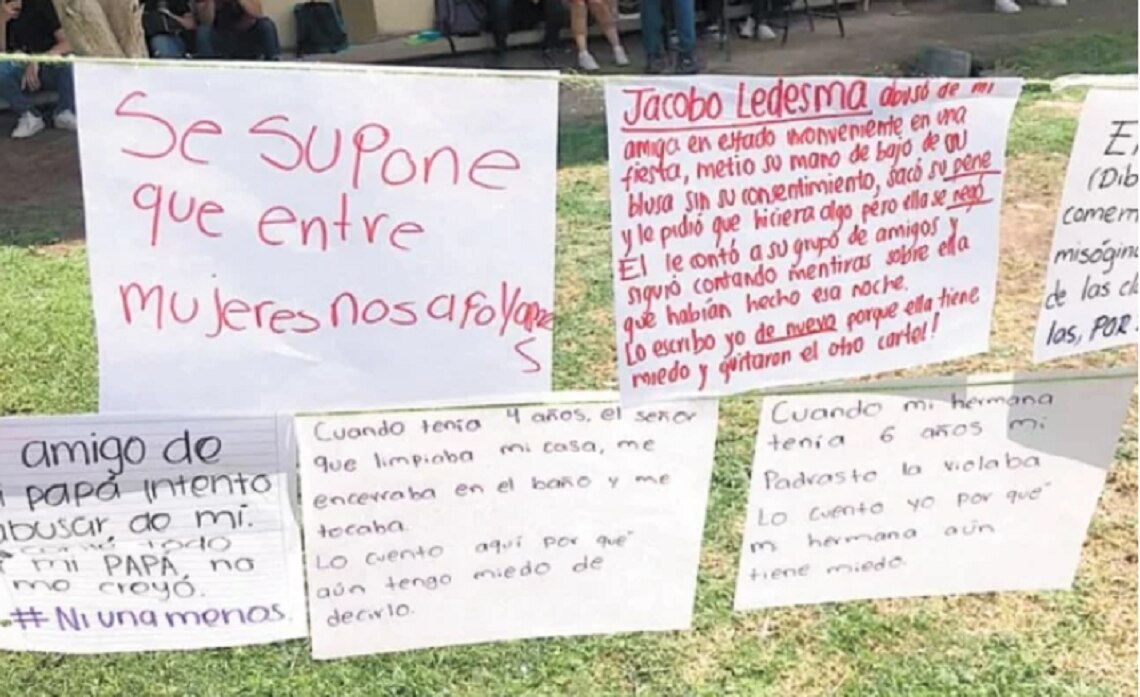 Se supone
que entre
mujeres nos apoyamo
s
Jacobo Ledesma abusó de mi
amiga en estado inconveniente en una
fiesta, metio su mano de bajo de su
blusa sin su consentimiento, sacó su pene
y le pidió que hiciera algo pero ella se negó
Él le contó a su grupo de amigos y
siguió contando mentiras sobre ella
que habían hecho esa noche.
Lo escribo yo de nuevo porque ella tiene
miedo y quitaron el otro cartel!
(Dib
comem
misógin
de las cl
las, POR
amigo de
papá intento
abusar do mi.
como todo
mi PAPÁ, no
mo creyó.
#Ni una menos.
Cuando tenía 4 años, el señor
que limpiaba mi casa, me
encerraba en el baño y me
tocaba.
Lo cuento aquí por que
aún tengo miedo de
decirlo.
Cuando mi hermana
tenía 6 años mi
Padrasto la violaba
Lo cuento yo por que
m hermana aún
tiene miedo.